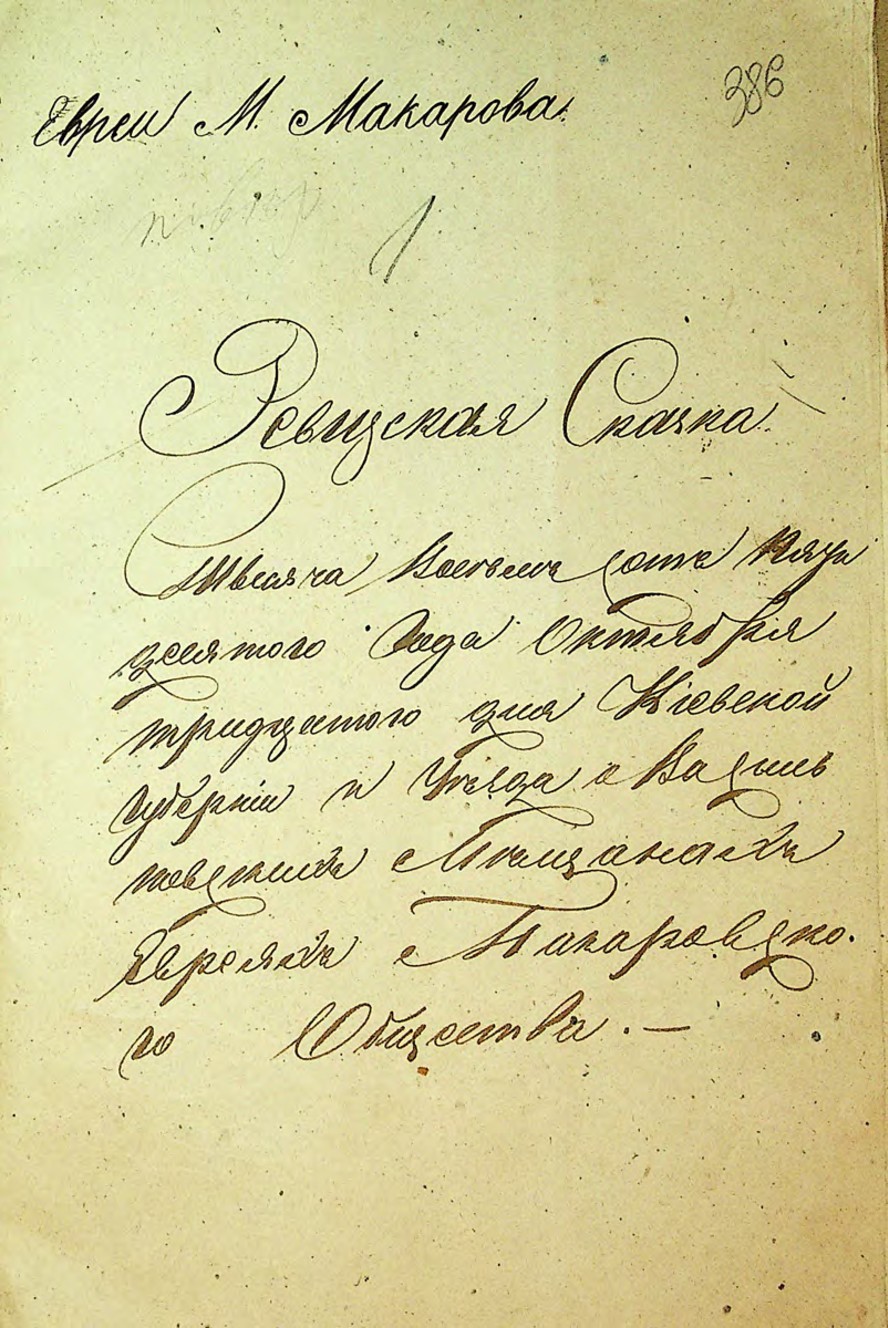 386
Евреи М. Макарова
1
Ревизская Сказка
Тысяча Восемь сотъ Пять
десятого Года Октября
тридцатого дня Кіевской
Губерніи и Уѣзда о Василь
ковскихъ Мѣщанахъ
Евреяхъ Макаровско-
го Общества. —